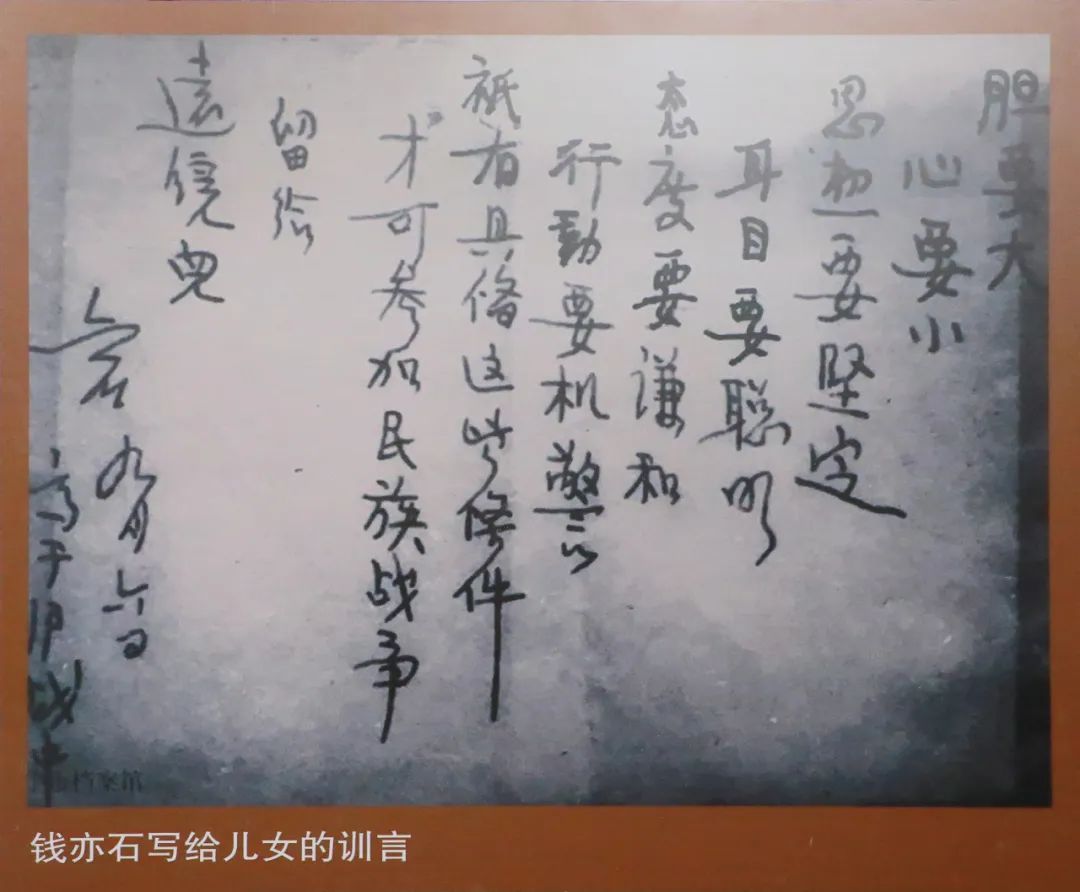 胆要大
心要小
思想要坚定
耳目要聪明
态度要谦和
行動要机警
祇有具俻这些條件
才可参加民族战争
留给
遠镜兒
石 九月六日
写于沪战中
档案馆
钱亦石写给儿女的训言